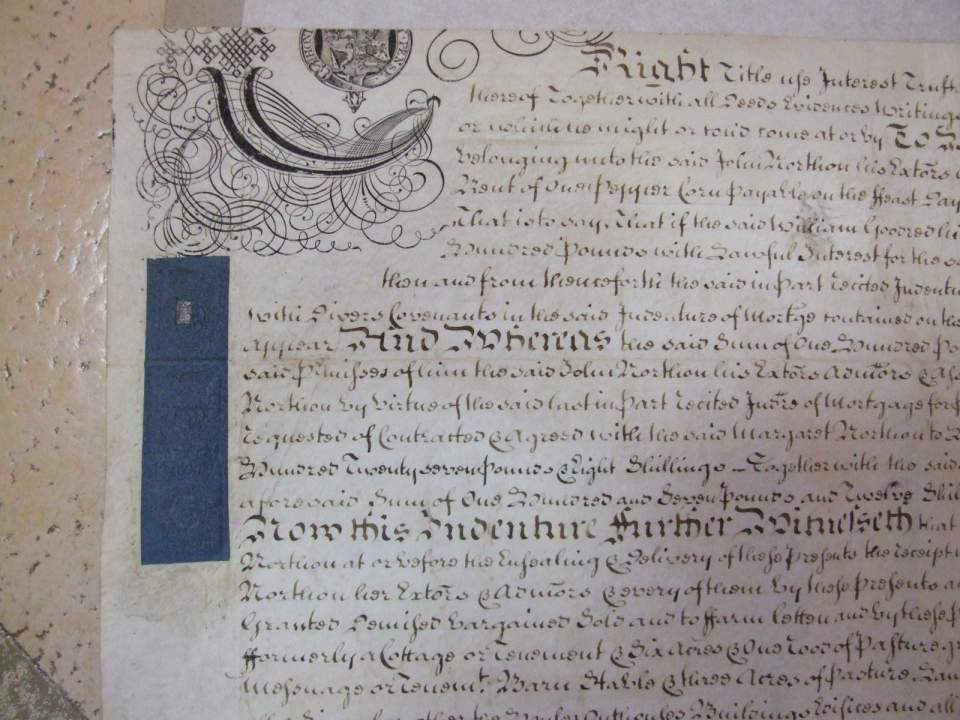 Right Title use Interest Trust
thereof Together with all Deeds Evidences Writing
or which he might or could come at or by TO
belonging unto the said John Northon his Exãtors
Rent of One Pepper Corn payable on the ffeast Day
That is to say, That if the said William Goodred
Hundred Pounds with Lawful Interest for the
then and from thenceforth the said in part Recited Indent
with Divers Covenants in the said Indenture of Mortge contained
appear And Whereas the said Sum of One Hundred
said Pmisses of him the said John Northon his Extors Admors &
Northon by virtue of the said last in part Recited Indre of Mortgage
requested of Contracted & Agreed with the said Margaret Northon to
Hundred Twenty seven pounds Eight Shillings Together with the said
aforesaid Sum of One Hundred and Seven Pounds and Twelve
Now this Indenture ffurther Witnesseth that
Northon at or before the Ensealing & Delivery of these Presents the receipt
Northon her Extors & Admors & every of them by these Presents
Granted Demised bargained Sold and to ffarm letten and by these
fformerly a Cottage or Tenement & Six Acres & One Rood of Pasture
Messuage or Tenemt. Barn Stable & three Acres of Pasture
Buildings Edifices and all